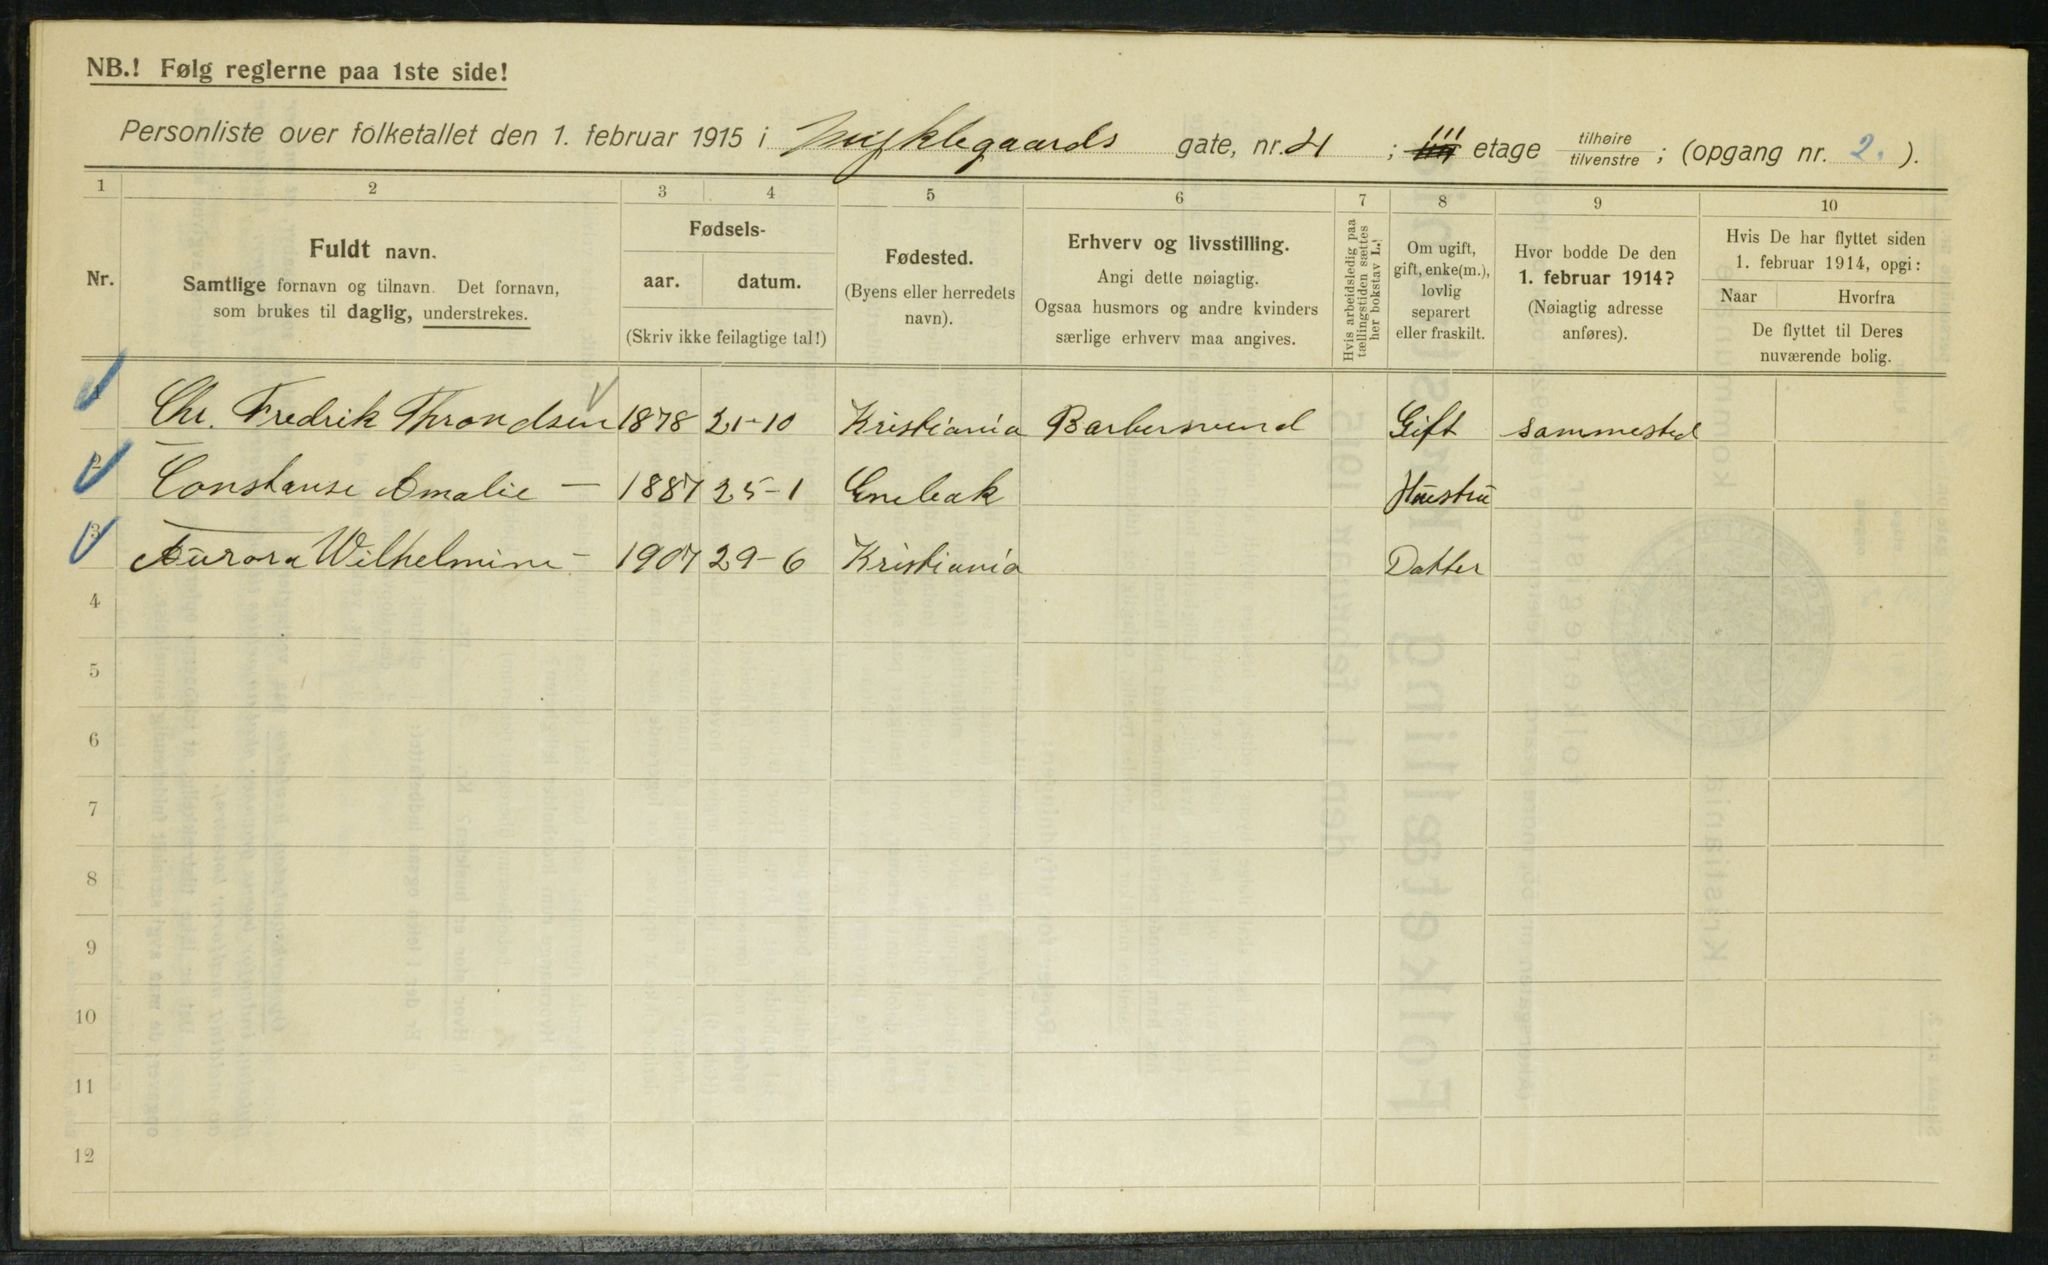 NB.! Følg reglerne paa 1ste side!
Personliste over folketallet den 1. februar 1915 i Myklegaards gate, nr. 21 ; III etage tilhøire tilvenstre ; (opgang nr. 2. ).
1 2 3 4 5 6 7 8 9 10
Nr.
Fuldt navn.
Samtlige fornavn og tilnavn. Det fornavn,
som brukes til daglig, understrekes.
Fødsels-
aar. datum.
(Skriv ikke feilagtige tal!)
Fødested.
(Byens eller herredets
navn).
Erhverv og livsstilling.
Angi dette nøiagtig.
Ogsaa husmors og andre kvinders
særlige erhverv maa angives.
Hvis arbeidsledig paa
tællingstiden sættes
her bokstav L.!
Om ugift,
gift, enke(m.),
lovlig
separert
eller fraskilt.
Hvor bodde De den
1. februar 1914?
(Nøiagtig adresse
anføres).
Hvis De har flyttet siden
1. februar 1914, opgi:
Naar Hvorfra
De flyttet til Deres
nuværende bolig.
1 Chr. Fredrik Throndsen 1878 21-10 Kristiania Barbersvend Gift sammested
2 Constanse Amalie — 1887 25-1 Enebak Hustru
3 Aurora Wilhelmine — 1907 29-6 Kristiania Datter
4
5
6
7
8
9
10
11
12